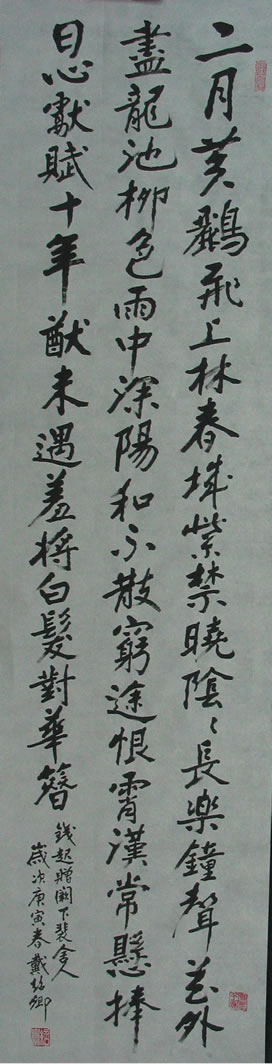 二月黃鸝飛上林春城紫禁曉陰〻長樂鐘聲花外
盡龍池柳色雨中深陽和不散窮途恨霄漢常懸捧
日心獻賦十年猷未遇羞將白髮對華簪
錢起贈闕下裴舍人
歲次庚寅春戴紹卿